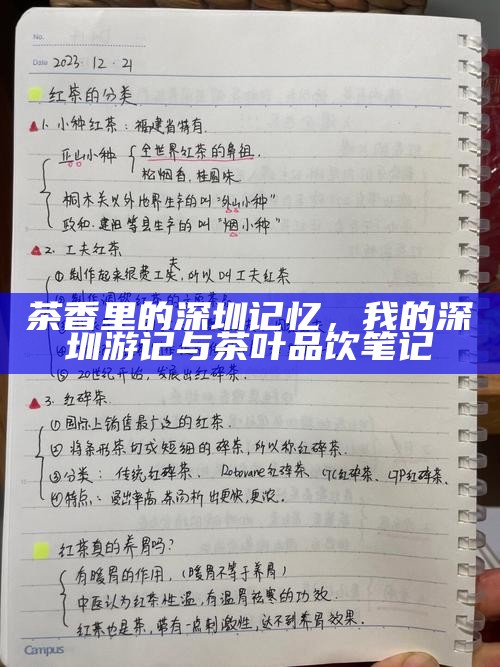 No.
Date 2023.12.21
红茶的分类
1. 小种红茶：福建省特有.
正山小种 { 全世界红茶的鼻祖.
松烟香，桂圆味
桐木关以外地界生产的叫"外山小种"
政和.建阳等县生产的叫"烟小种"
2. 工夫红茶
①制作起来很费工夫，所以叫工夫红茶
茶香里的深圳记忆，我的深
圳游记与茶叶品饮笔记
② 20世纪开始，发展出红碎茶.
3. 红碎茶.
①国际上销售最广泛的红茶.
②将条形茶切成短细的碎茶，所以称红碎茶.
③分类：传统红碎茶、Rotovane红碎茶、CTC红碎茶、LTP红碎茶、
④特点：浸出率高，茶汤析出更快，更浓.
红茶真的养胃吗？
有暖胃的作用，（暖胃不等于养胃）
中医认为红茶性温，有温胃祛寒的功效.
红茶也是茶，带有一点刺激性，达不到养胃效果.
Campus